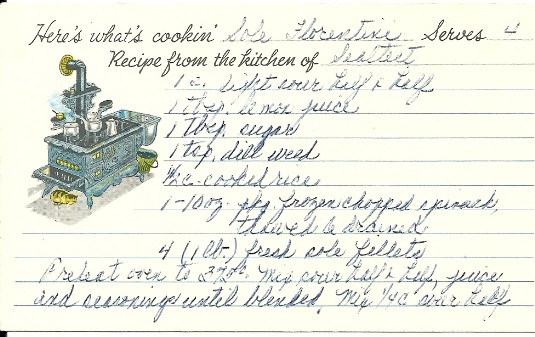 Here's what's cookin' Sole Florentine Serves 4
Recipe from the kitchen of Sealtest
1 c. light sour half & half
1 tbsp. lemon juice
1 Tbsp. sugar
1 tsp. dill weed
1/2 c. cooked rice
1-10 oz. pkg. frozen chopped spinach,
thawed & drained
4 (1 lb.) fresh sole fillets
Preheat oven to 375°. Mix sour half & half, juice
and seasonings until blended. Mix 1/4 c sour half